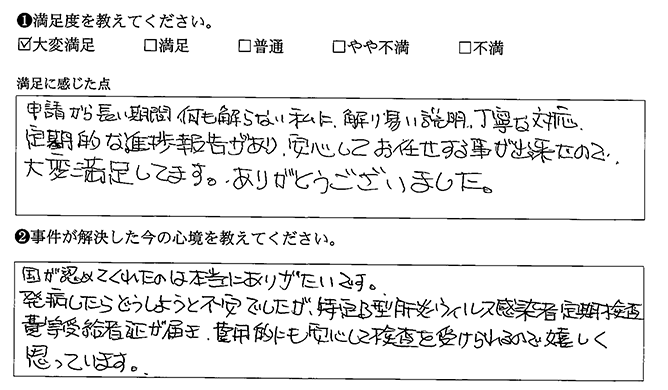 ❶満足度を教えてください。
☑大変満足 □満足 □普通 □やや不満 □不満
満足に感じた点
申請から長い期間何も解らない私に、解り易い説明、丁寧な対応、
定期的な進捗報告があり、安心してお任せする事が出来たので、
大変満足してます。ありがとうございました。
❷事件が解決した今の心境を教えてください。
国が認めてくれたのは本当にありがたいです。
発病したらどうしようと不安でしたが、特定B型肝炎ウィルス感染者定期検査
費等受給者証が届き、費用的にも安心して検査を受けられるので嬉しく
思っています。